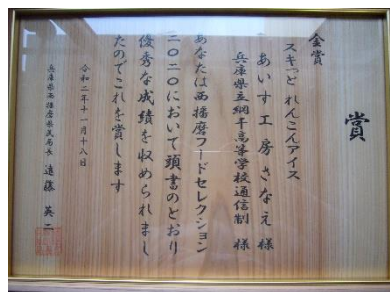 賞
金賞
スキっと れんこんアイス
あいす工房さなえ 様
兵庫県立網干高等学校通信制 様
あなたは西播磨フードセレクション
二〇二〇において頭書のとおり
優秀な成績を収められまし
たのでこれを賞します
令和二年十一月十八日
兵庫県西播磨県民局長 遠藤 英二